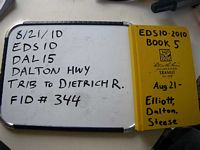 8/21/10
EDS10
DAL15
DALTON HWY
TRIB TO DIETRICH R.
FID # 344
EDS10-2010
BOOK 5
TRANSIT
Aug 21 -
Elliott,
Dalton,
Steese